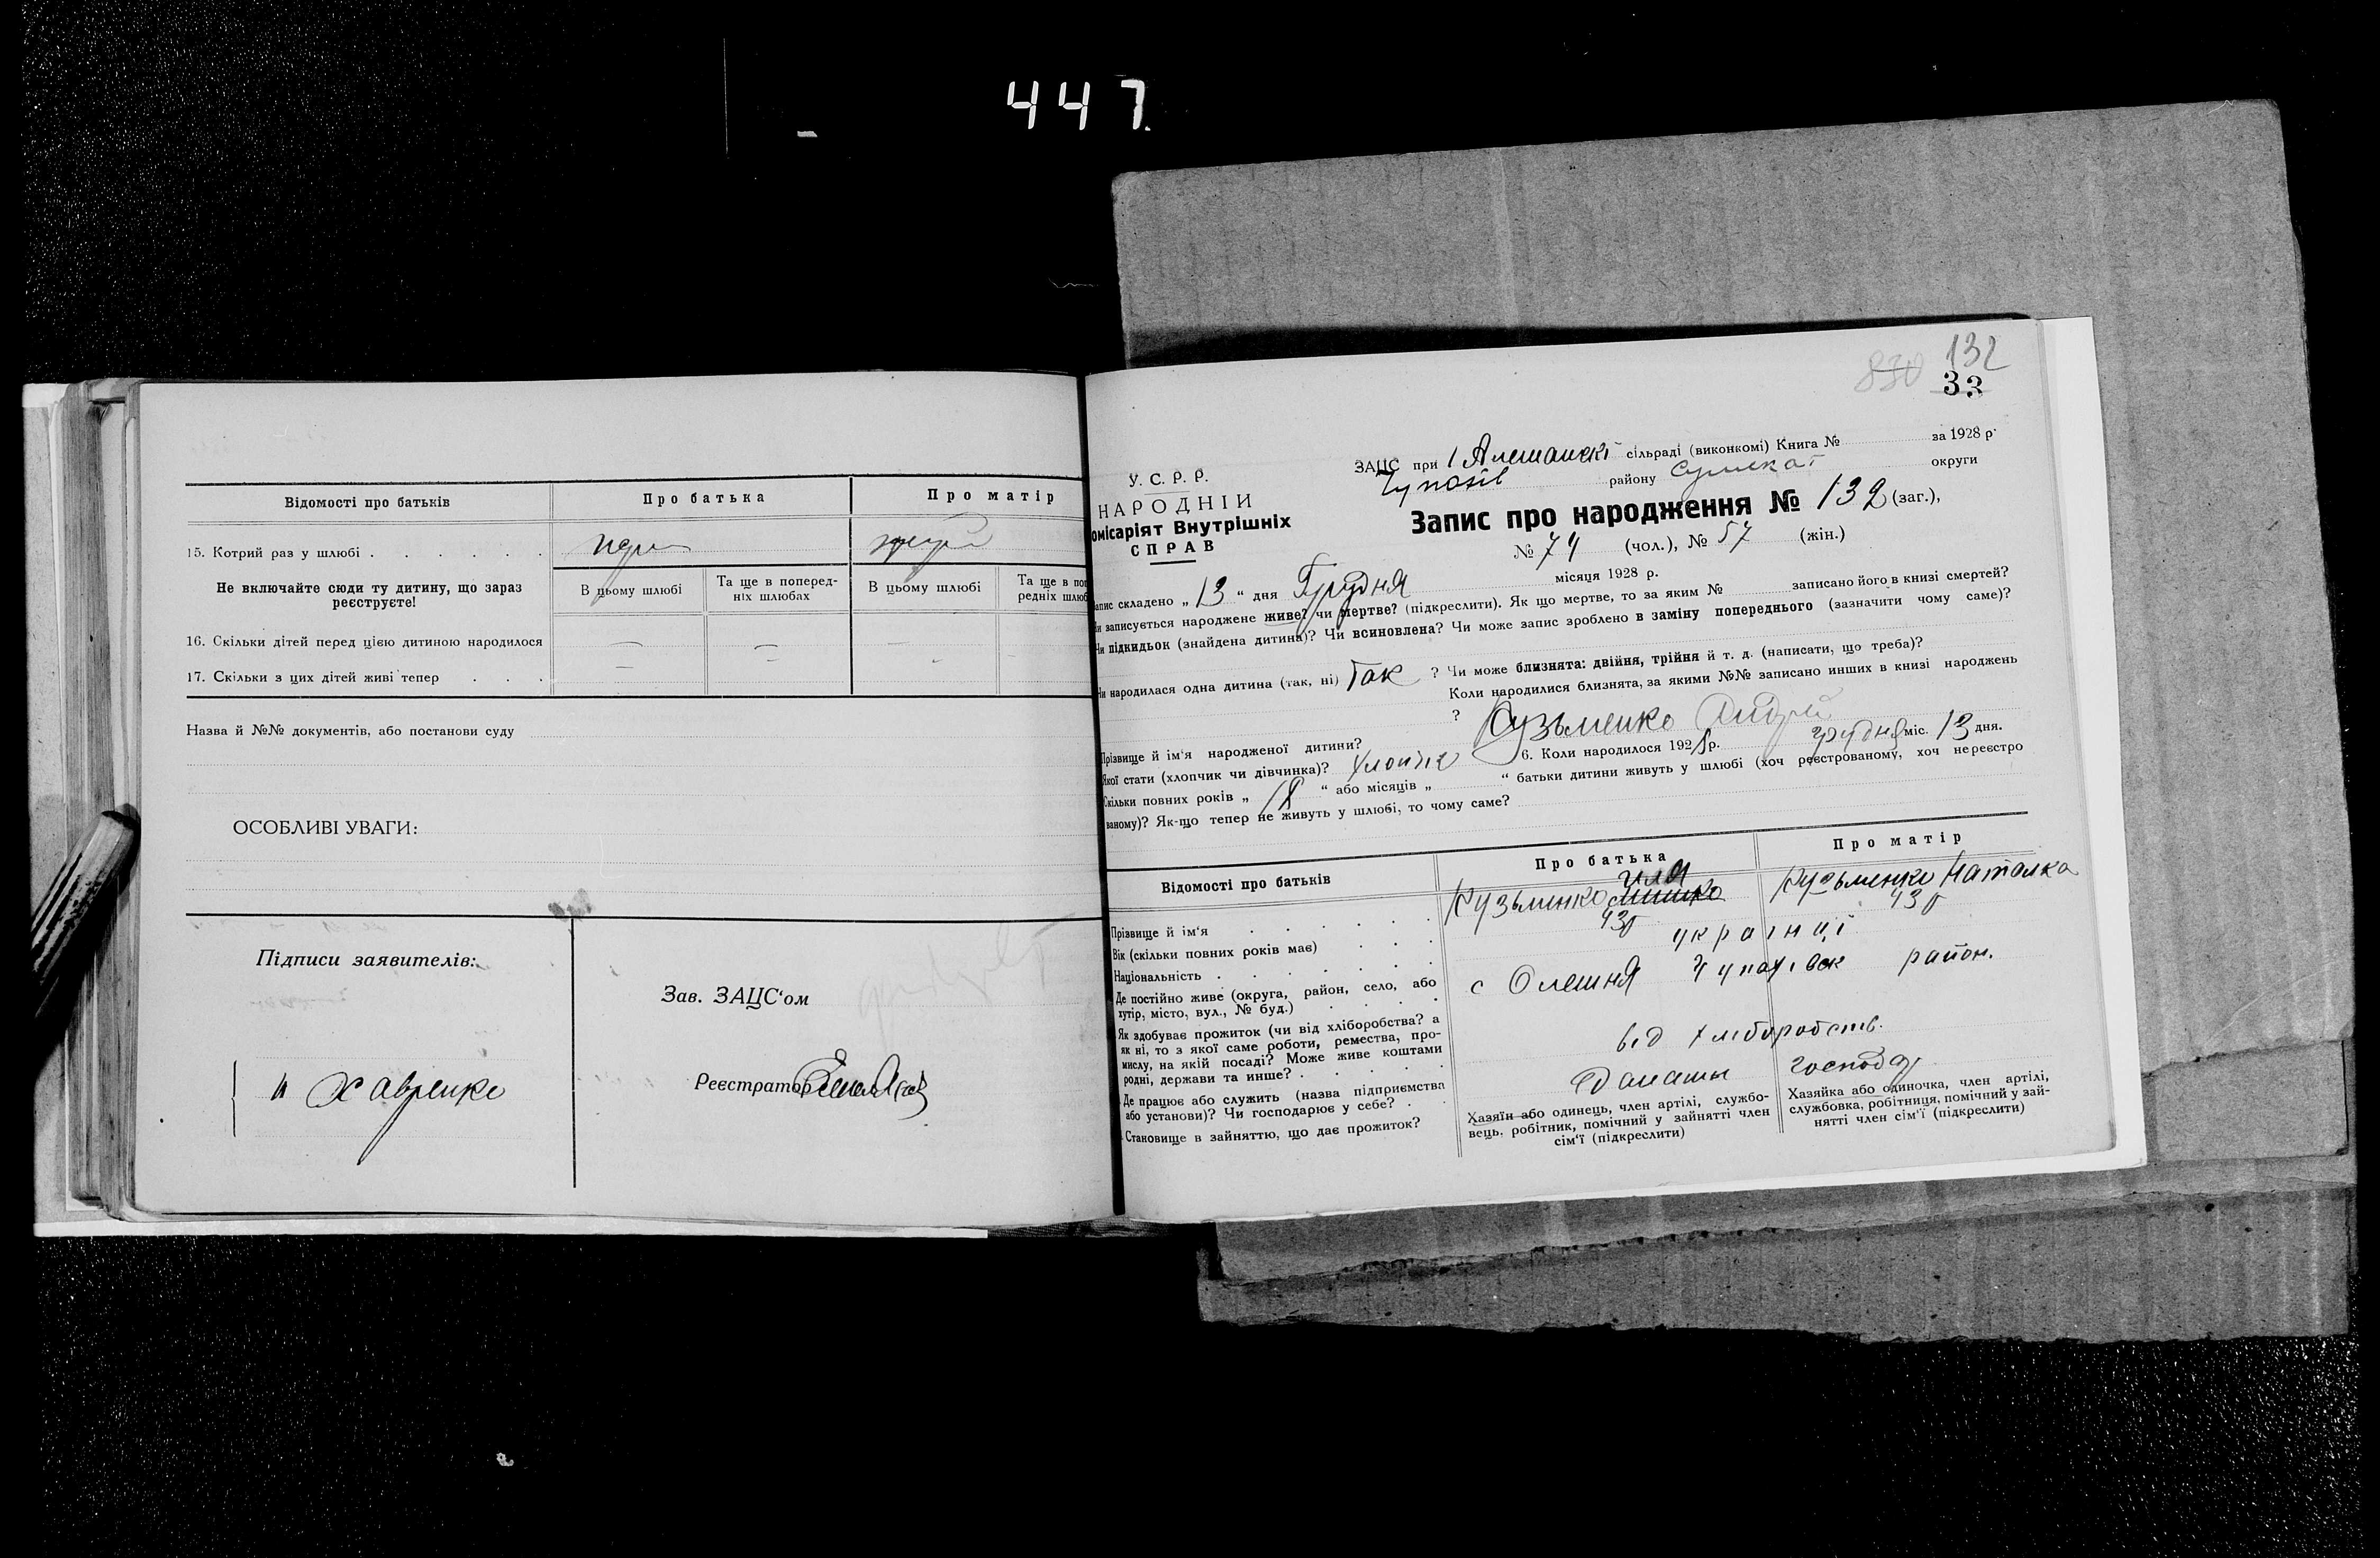 447.
Відомості про батьків
Про батька
Про матір
15. Котрий раз у шлюбі . . . . . .
Не включайте сюди ту дитину, що зараз
реєструєте!
В цьому шлюбі
Та ще в поперед-
ніх шлюбах
В цьому шлюбі
Та ще в поп
редніх шлюб
16. Скільки дітей перед цією дитиною народилося
— — —
17. Скільки з цих дітей живі тепер . . .
— — -
Назва й №№ документів, або постанови суду
ОСОБЛИВІ УВАГИ:
Підписи заявителів:
Зав. ЗАЦС'ом
Хавренко
Реєстратор
830 132
33
У. С. Р. Р.
НАРОДНІЙ
омісаріят Внутрішніх
СПРАВ
ЗАЦС при 1 Алешанскі сільраді (виконкомі) Книга № за 1928 р.
району округи
Запис про народження № 132 (заг.),
№ 74 (чол.), № 57 (жін.)
апис складено „ 13 “ дня Грудня місяця 1928 р.
и записується народжене живе? чи мертве? (підкреслити). Як що мертве, то за яким № записано його в книзі смертей?
Чи підкидьок (знайдена дитина)? Чи всиновлена? Чи може запис зроблено в заміну попереднього (зазначити чому саме)?
Чи народилася одна дитина (так, ні) Так ? Чи може близнята: двійня, трійня й т. д. (написати, що треба)?
Коли народилися близнята, за якими №№ записано инших в книзі народжень
?
Прізвище й ім'я народженої дитини? Кузьменко Андрей
Якої стати (хлопчик чи дівчинка)? хлопчик 6. Коли народилося 1928 р. грудня міс. 13 дня.
Скільки повних років „ 18 “ або місяців „ “ батьки дитини живуть у шлюбі (хоч реєстрованому, хоч нереєстро
ваному)? Як-що тепер не живуть у шлюбі, то чому саме?
Відомості про батьків
Про батька
Про матір
Прізвище й ім'я . . . . . Кузьменко Илля Кузьменко Наталка
Вік (скільки повних років має) . . . 43 43
Національність . . . . . . . українці
Де постійно живе (округа, район, село, або
хутір, місто, вул., № буд.) . . . . . с Олешня Чупахівск район.
Як здобуває прожиток (чи від хліборобства? а
як ні, то з якої саме роботи, ремества, про-
мислу, на якій посаді? Може живе коштами
родні, держави та инше? . . . . . від хліборобств.
Де працює або служить (назва підприємства
або установи)? Чи господарює у себе? . .
Становище в зайняттю, що дає прожиток?
Хазяїн або одинець, член артілі, службо-
вець, робітник, помічний у зайнятті член
сім'ї (підкреслити)
Хазяйка або одиночка, член артілі,
службовка, робітниця, помічний у зай-
нятті член сім'ї (підкреслити)